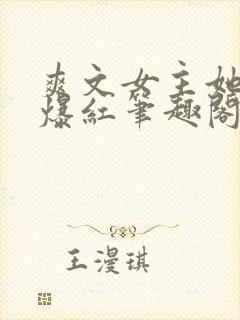 爽文女主她
爆红筆趣閣
王漫琪